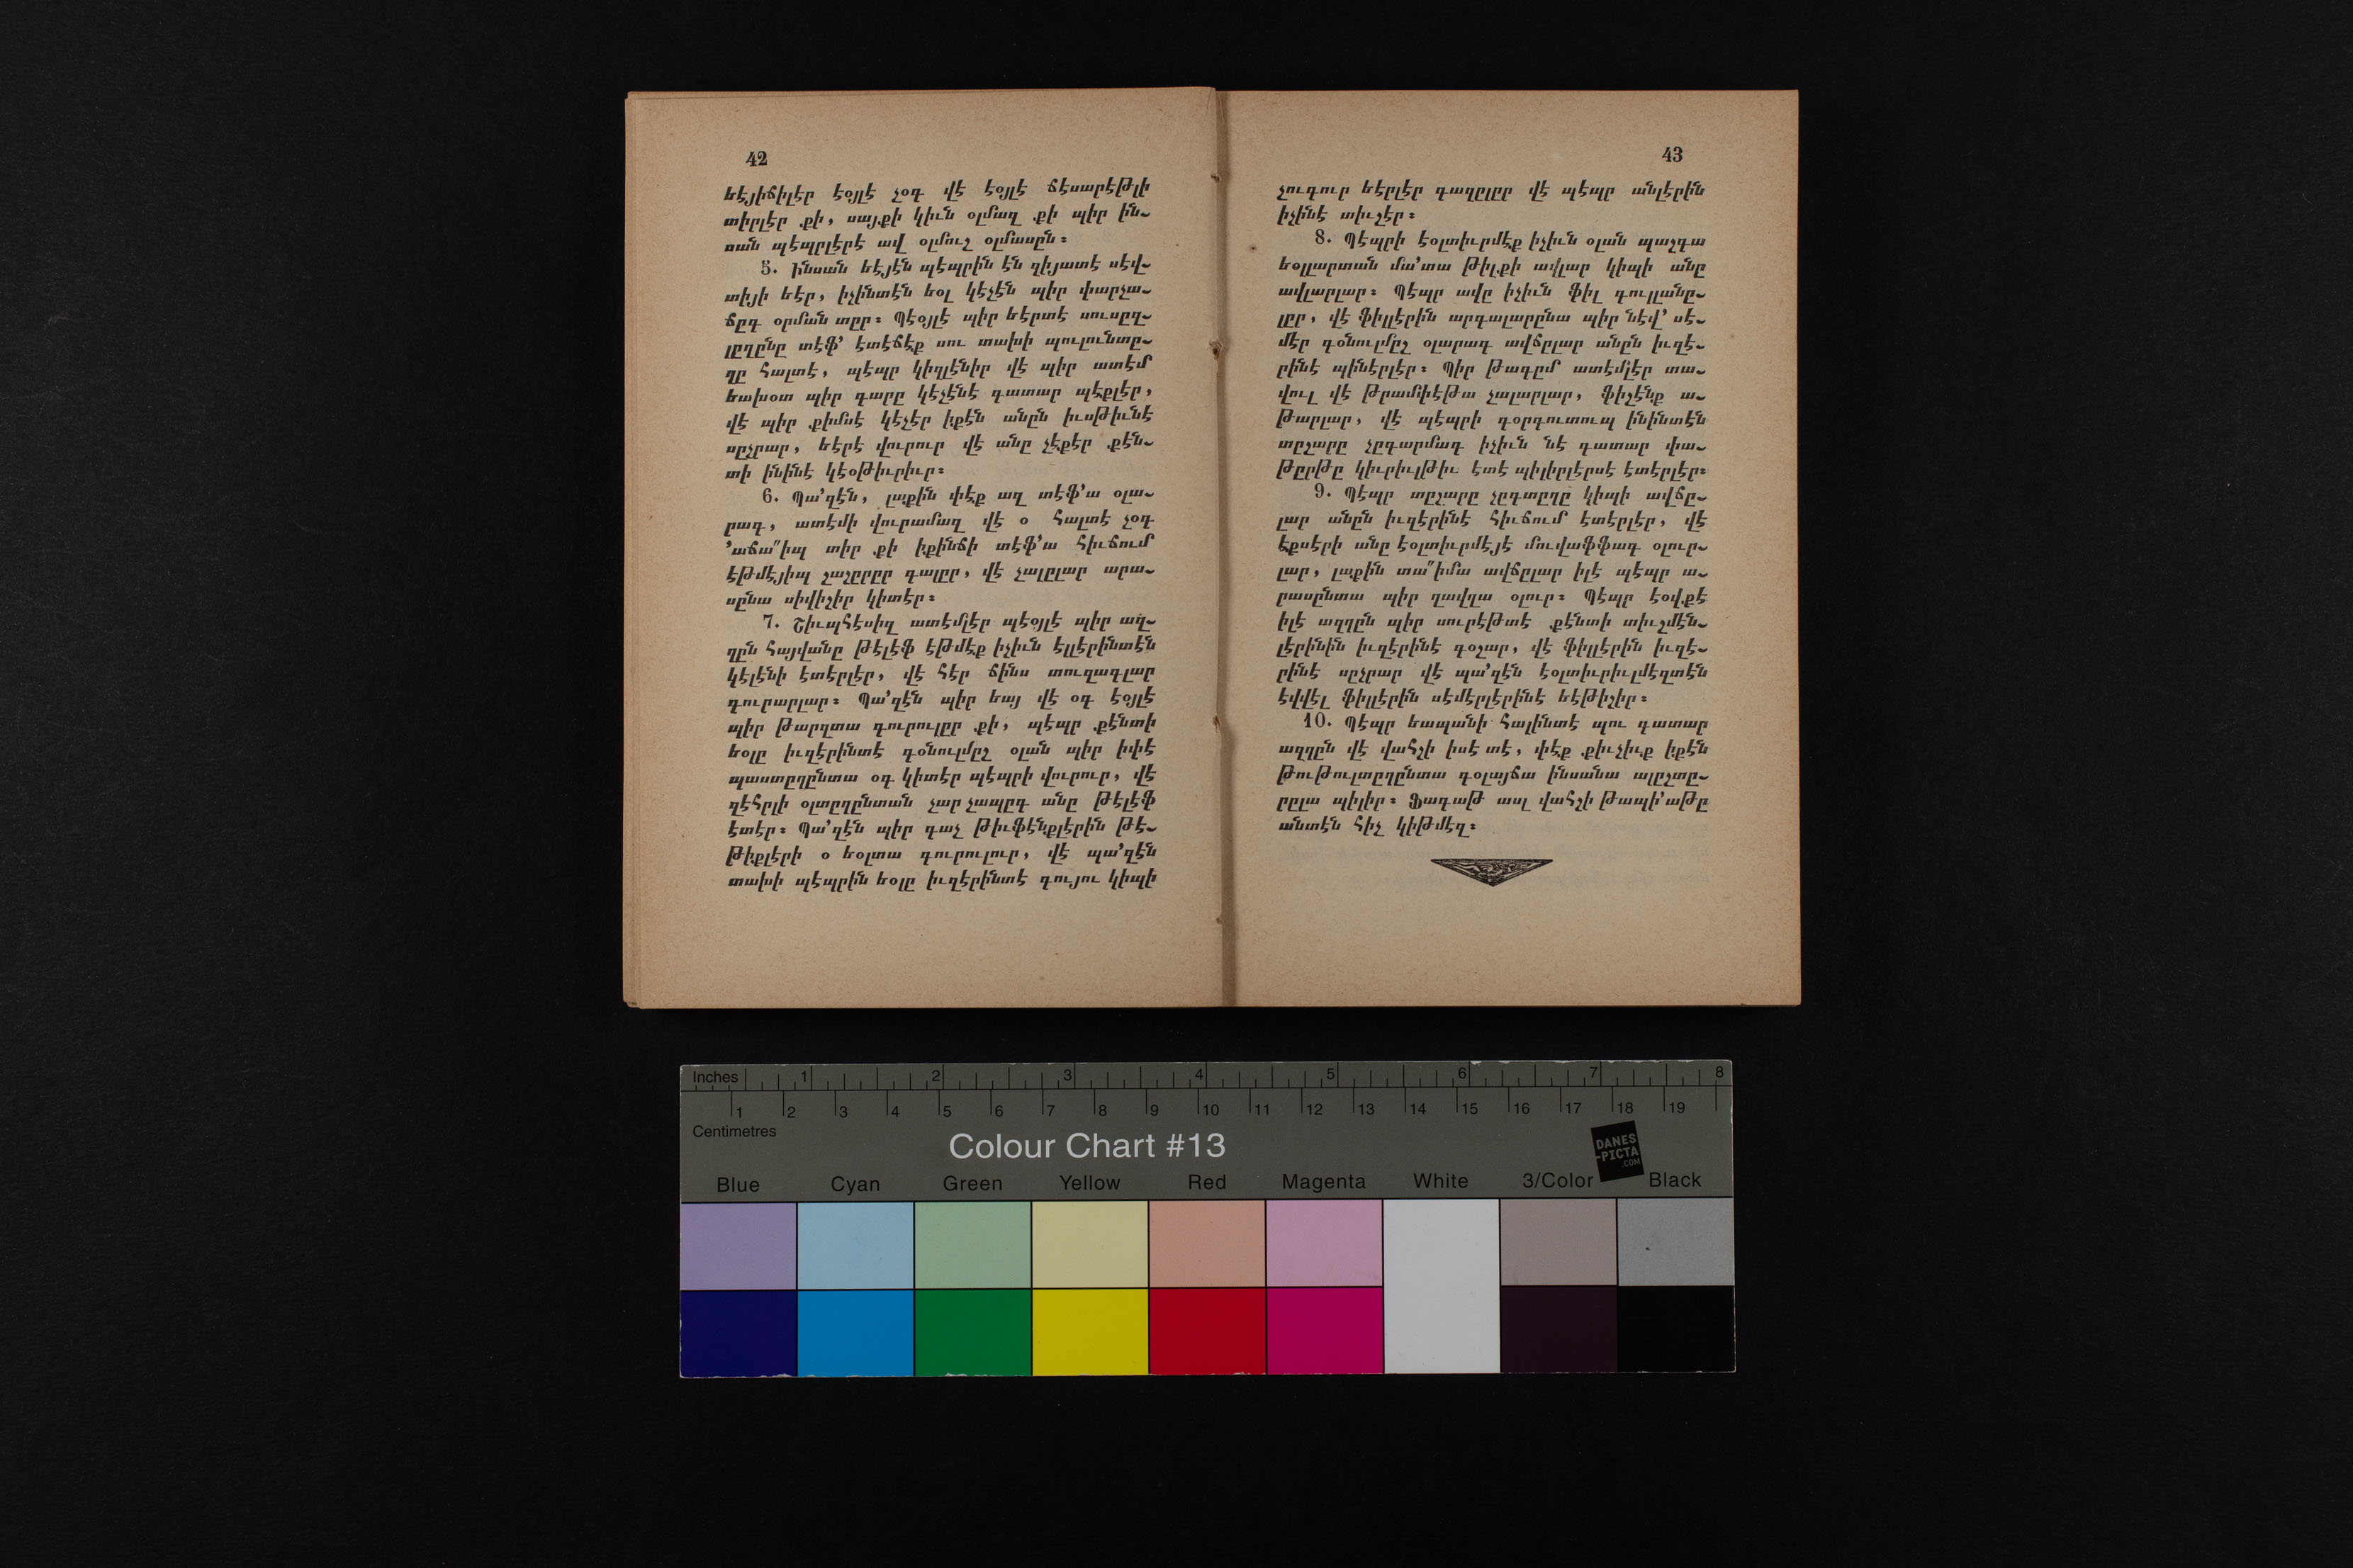 42
եէյիճիլէր էօյլէ չօգ վէ էօյլէ ճէսարէթլի
տիրլէր քի, սայքի կիւն օլմազ քի պիր ին֊
սան պէպրլէրէ ավ օլմուշ օլմասըն։
5. Ինսան եէյէն պէպրին էն զիյատէ սէվ֊
տիյի եէր, իչինտէն եօլ կէչէն պիր փարչա֊
ճըգ օրման տըր։ Պէօյլէ պիր եէրտէ սուսըզ֊
լըղընը տէֆ՚ էտէճէք սու տախի պուլունտը֊
ղը հալտէ, պէպր կիզլէնիր վէ պիր ատէմ
եախօտ պիր գարը կէչէնէ գատար պէքլէր,
վէ պիր քիմսէ կէչէր իքէն անըն իւսթիւնէ
սըչրար, եէրէ վուրուր վէ անը չէքէր քէն֊
տի ինինէ կէօթիւրիւր։
6. Պա՚զէն, լաքին փէք ազ տէֆ՚ա օլա֊
րագ, ատէմի վուրամազ վէ օ հալտէ չօգ
՚աճա՞իպ տիր քի իքինճի տէֆ՚ա հիւճում
էթմէյիպ շաշըրըր գալըր, վէ չալըլար արա֊
սընա սիվիշիր կիտէր։
7. Շիւպհէսիզ ատէմլէր պէօյլէ պիր ազ֊
ղըն հայվանը թէլէֆ էթմէք իչիւն էլլէրինտէն
կէլէնի էտէրլէր, վէ հէր ճինս տուզագլար
գուրարլար։ Պա՚զէն պիր եայ վէ օգ էօյլէ
պիր թարզտա գուրուլըր քի, պէպր քէնտի
եօլը իւզէրինտէ գօնուլմըշ օլան պիր իփէ
պաստըղընտա օգ կիտէր պէպրի վուրուր, վէ
զէհրլի օլտըղընտան չար չապըգ անը թէլէֆ
էտէր։ Պա՚զէն պիր գաչ թիւֆէնքլէրին թէ֊
թիքլէրի օ եօլտա գուրուլուր, վէ պա՚զէն
տախի պէպրին եօլը իւզէրինտէ գույու կիպի
43
չուգուր եէրլէր գազըլըր վէ պէպր անլէրին
իչինէ տիւշէր։
8. Պէպրի էօլտիւրմէք իչիւն օլան պաշգա
եօլլարտան մա՚տա թիլքի ավլար կիպի անը
ավլարլար։ Պէպր ավը իչիւն ֆիլ գուլլանը֊
լըր, վէ ֆիլլէրին արգալարընա պիր նէվ՚ սէ֊
մէր գօնուլմըշ օլարագ ավճըլար անըն իւզէ֊
րինէ պինէրլէր։ Պիր թագըմ ատէմլէր տա֊
վուլ վէ թրամփէթա չալարլար, ֆիշէնք ա֊
թարլար, վէ պէպրի գօրգուտուպ ինինտէն
տըշարը չըգարմագ իչիւն նէ գատար փա֊
թըրթը կիւրիւլթիւ էտէ պիլիրլէրսէ էտէրլէր։
9. Պէպր տըշարը չըգտըղը կիպի ավճը֊
լար անըն իւզէրինէ հիւճում էտէրլէր, վէ
էքսէրի անը էօլտիւրմէյէ մուվաֆֆագ օլուր֊
լար, լաքին տա՞իմա ավճըլար իլէ պէպր ա֊
րասընտա պիր ղավղա օլուր։ Պէպր էօվքէ
իլէ ազղըն պիր սուրէթտէ քէնտի տիւշմէն֊
լէրինին իւզէրինէ գօշար, վէ ֆիլլէրին իւզէ֊
րինէ սըչրար վէ պա՚զէն էօլտիւրիւլմէզտէն
էվվէլ ֆիլլէրին սէմէրլէրինէ եէթիշիր։
10. Պէպր եապանի հալինտէ պու գատար
ազղըն վէ վահշի իսէ տէ, փէք քիւչիւք իքէն
թութուլտըղընտա գօլայճա ինսանա ալըշտը֊
րըլա պիլիր։ Ֆագաթ ասլ վահշի թապի՚աթը
անտէն հիչ կիթմէզ։
Inches 1 2 3 4 5 6 7 8
1 2 3 4 5 6 7 8 9 10 11 12 13 14 15 16 17 18 19
Centimetres
Colour Chart #13
DANES
-PICTA
.COM
Blue Cyan Green Yellow Red Magenta White 3/Color Black